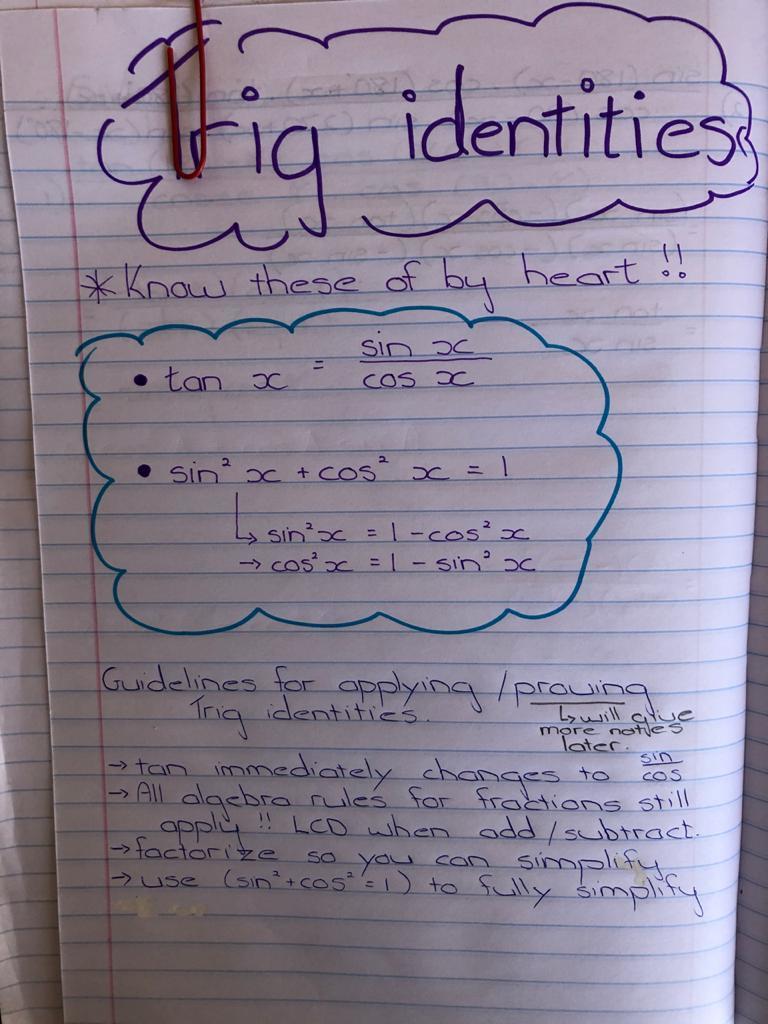 Trig identities
* Know these of by heart !!
• tan x = sin x / cos x
• sin² x + cos² x = 1
↳ sin²x = 1 - cos² x
→ cos²x = 1 - sin² x
Guidelines for applying / proving
Trig identities.
↳ will give
more notes
later.
→ tan immediately changes to sin / cos
→ All algebra rules for fractions still
apply !! LCD when add / subtract.
→ factorize so you can simplify
→ use (sin² + cos² = 1) to fully simplify